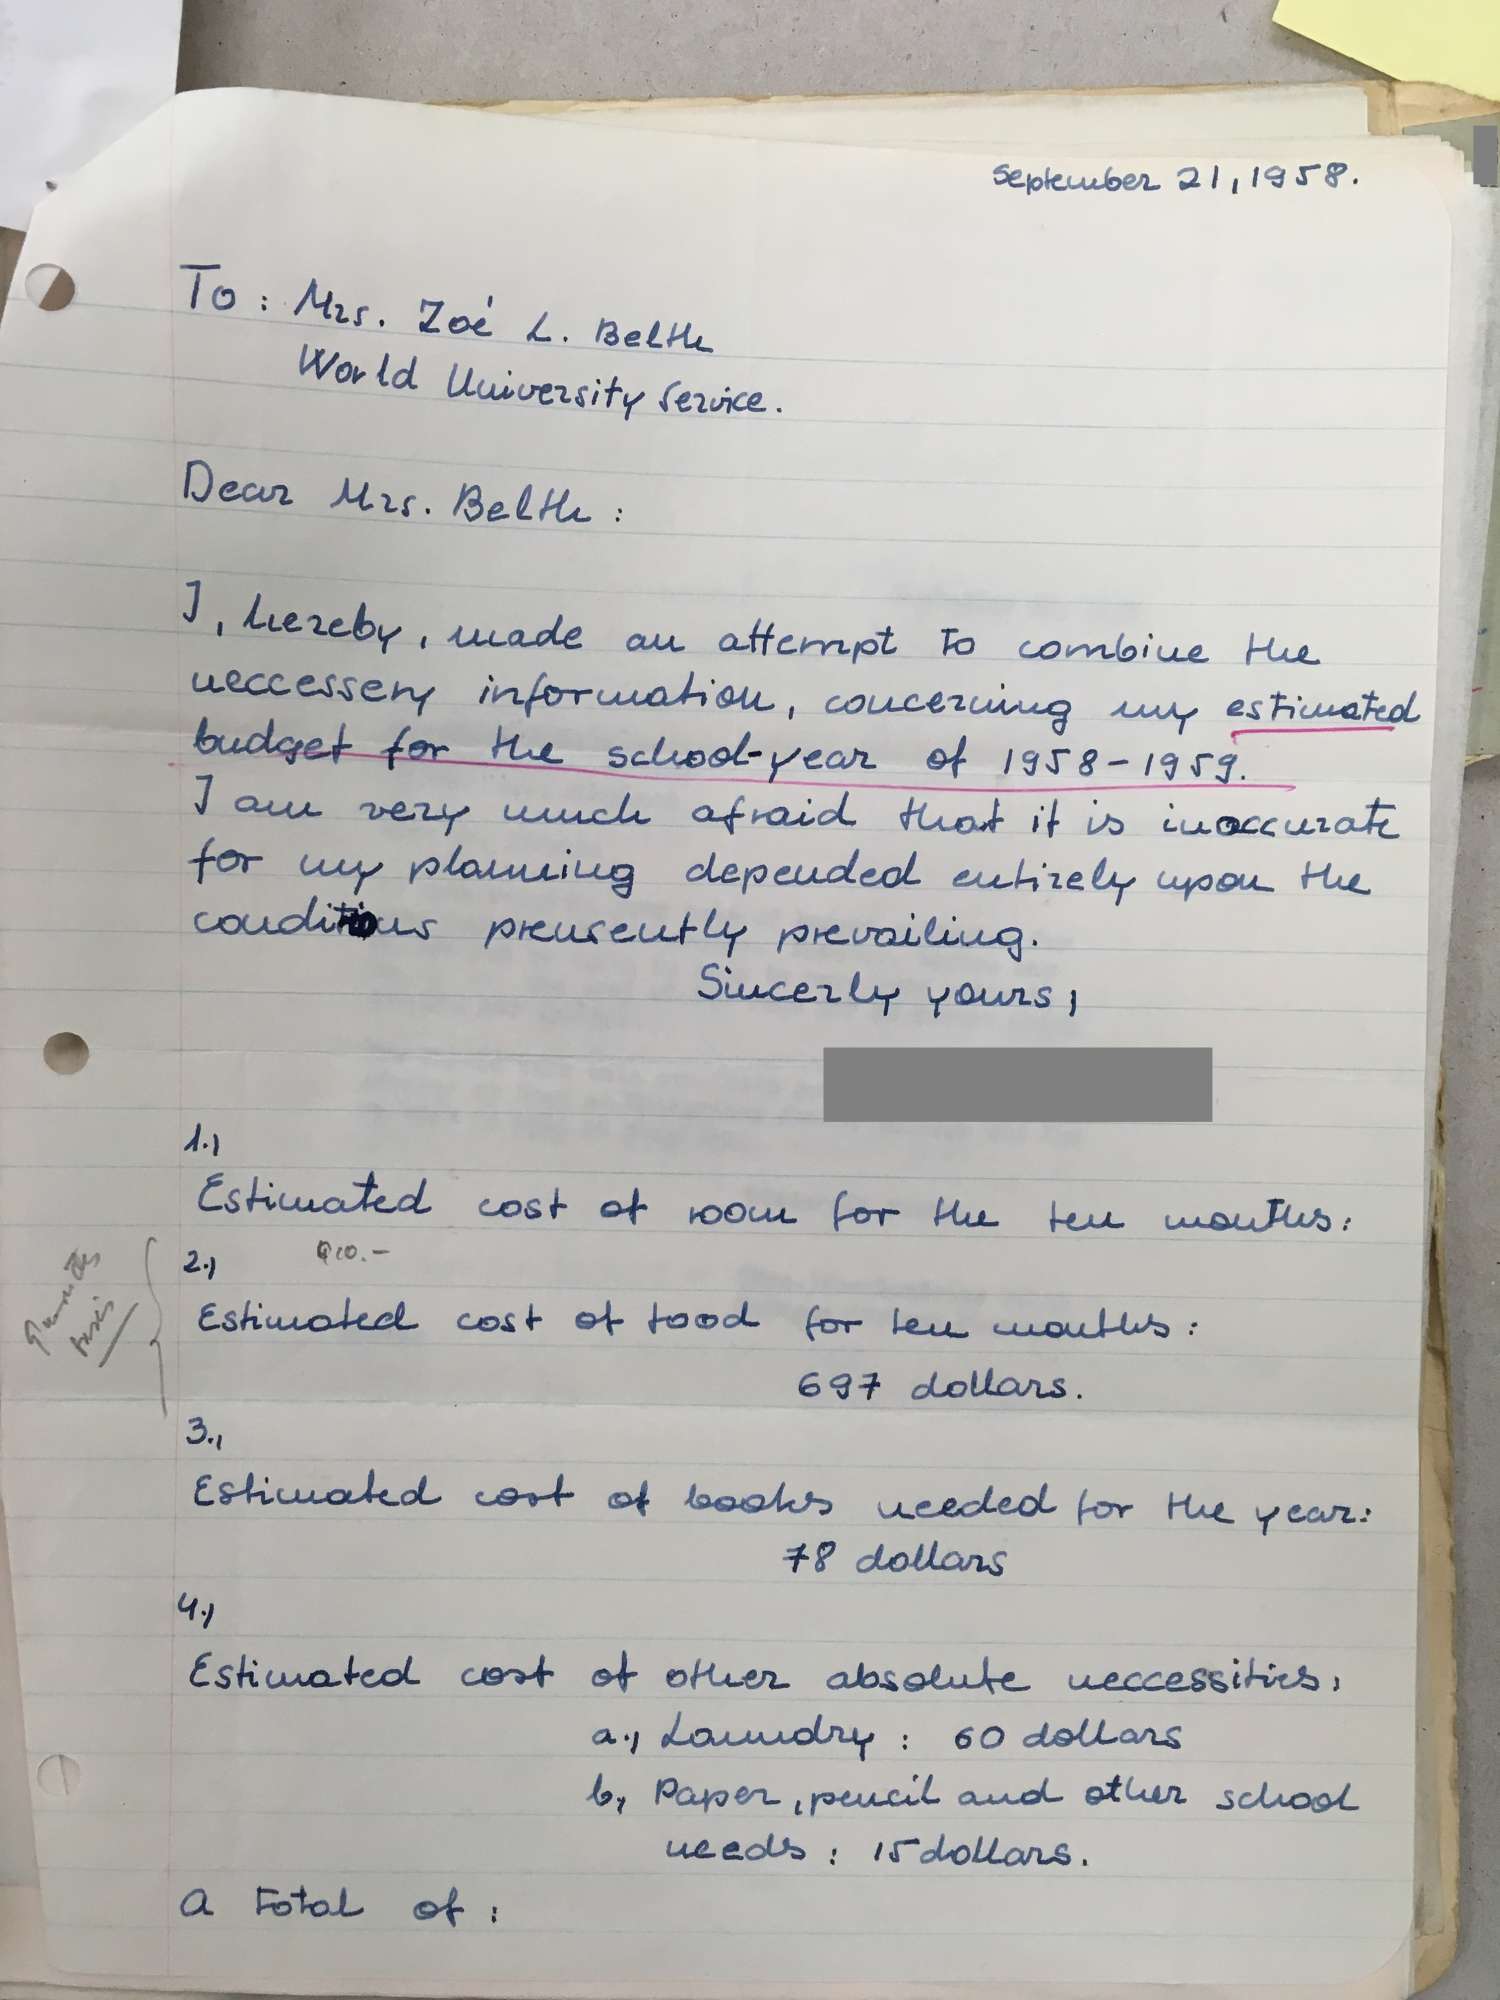 September 21, 1958.
To: Mrs. Zoé L. Belth
World University Service.
Dear Mrs. Belth:
I, hereby, made an attempt to combine the
neccessery information, concerning my estimated
budget for the school-year of 1958-1959.
I am very much afraid that it is inaccurate
for my planning depended entirely upon the
conditions prensently prevailing.
Sincerly yours,
1.,
Estimated cost of room for the ten months:
2.,
Estimated cost of food for ten months:
697 dollars.
3.,
Estimated cost of books needed for the year:
78 dollars
4.,
Estimated cost of other absolute neccessities:
a., Laundry: 60 dollars
b, Paper, pencil and other school
needs: 15 dollars.
A total of: